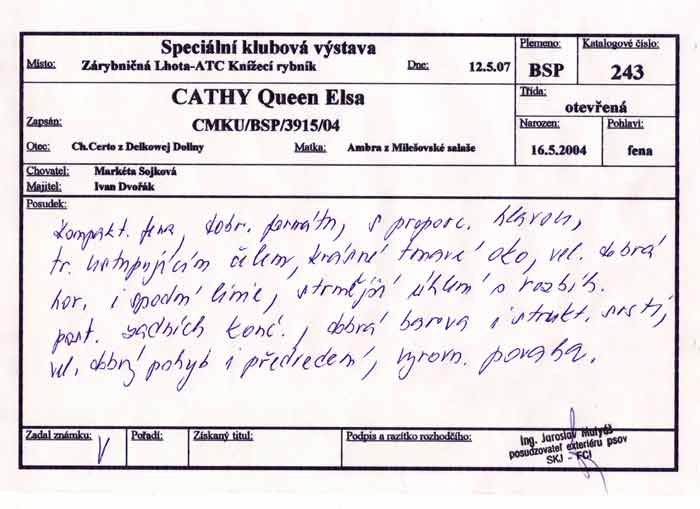 Speciální klubová výstava
Místo: Zárybničná Lhota-ATC Knížecí rybník Dne: 12.5.07
Plemeno: BSP
Katalogové číslo: 243
CATHY Queen Elsa
Třída: otevřená
Zapsán: CMKU/BSP/3915/04
Narozen: 16.5.2004
Pohlaví: fena
Otec: Ch.Certo z Delkowej Doliny Matka: Ambra z Milešovské salaše
Chovatel: Markéta Sojková
Majitel: Ivan Dvořák
Posudek:
Kompakt. fena, dobr. formátu, s proporc. hlavou,
tr. ustupujícím čelem, krásné tmavé oko, vel. dobrá
hor. i spodní linie, strmější úhlení s rozbíh.
post. zadních konč., dobrá barva i strukt. srsti,
vel. dobrý pohyb i předvedení, vyrovn. povaha.
Zadal známku: V Pořadí: Získaný titul: Podpis a razítko rozhodčího:
Ing. Jaroslav Matyáš
posuzovatel exteriéru psov
SKJ - FCI